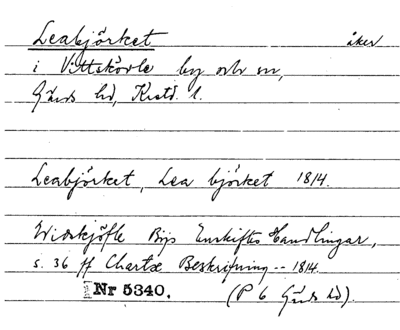 Leabjörket åker
i Vittskövle by och sn,
Gärds hd, Krstd. l.
Leabjörket, Lea björket 1814.
Widskjöfle Bys Enskiftes Handlingar,
s. 36 ff Chartæ Beskrifning -- 1814.
Nr 5340. (P 6 Gärds hd).